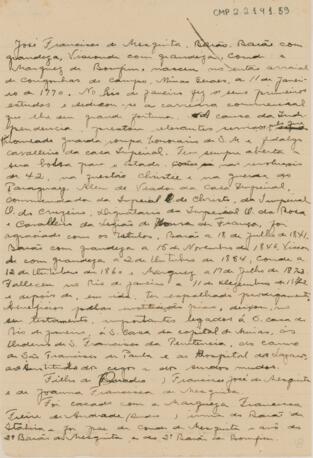 CMP 2.2.141.89
José Francisco de Mesquita, Barão, Barão com
grandeza, Visconde com grandeza, Conde e
Marquez de Bomfim, nasceu no então arraial
de Congonhas do Campo, Minas Geraes, a 11 de janei-
ro de 1790. No Rio de Janeiro fez os seus primeiros
estudos e dedicou-se a carreira commercial
que lhe deu grande fortuna. A causa da Inde-
pendencia prestou relevantes serviços
honorario de S. M. e fidalgo
cavalleiro da casa Imperial. Teve sempre aberta a
sua bolsa para o Estado, nas revoluções
de 42, na questão Christie e na guerra do
Paraguay. Alem de Veador da Casa Imperial,
commendador da Imperial O. de Christo, da Imperial
O. do Cruzeiro, Dignitario da Imperial O. da Rosa
e Cavalleiro da Legião de Honra da França, foi
agraciado com os titulos, Barão a 18 de julho de 1841,
Barão com grandeza a 15 de Novembro de 1846, Viscon-
de com grandeza a 2 de Dezembro de 1854, Conde a
12 de Outubro de 1860 e Marquez a 17 de julho de 1872
Falleceu no Rio de Janeiro a 11 de Dezembro de 1872
e depois de, em vida, ter espalhado
beneficios pelas instituições pias, deixou, no
seu testamento, importantes legados á S. Casa do
Rio de Janeiro, á S. Casa da capital de Minas, ás
Ordens de S. Francisco da Penitencia, do Carmo
de São Francisco de Paula e ao Hospital dos Lazaros,
ao Instituto dos cegos e dos surdos mudos.
Filho de Francisco José de Mesquita
e de Joanna Francisca de Mesquita
Foi casado com a Marqueza Francisca
Freire de Andrade, irmã do Barão de
Itabira e foi pae do Conde de Mesquita e avô do
2º Barão de Mesquita, e do 2º Barão de Bomfim.